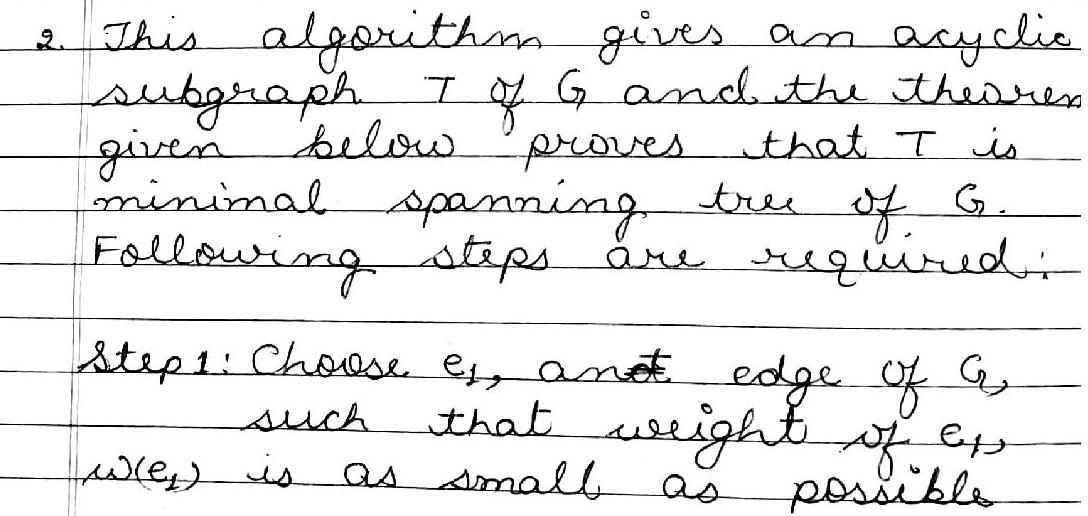 2. This algorithm gives an acyclic
subgraph T of G and the theorem
given below proves that T is
minimal spanning tree of G.
Following steps are required:
Step 1: Choose e₁, an edge of G,
such that weight of e₁,
w(e₁) is as small as possible